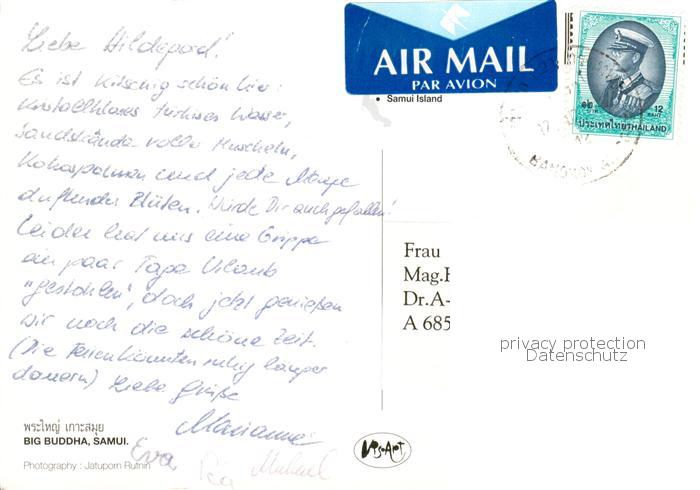 Liebe Hildegard!
Es ist kitschig schön hier:
kristallklares türkises Wasser,
Sandstrände voller Muscheln,
Kokospalmen und jede Menge
duftender Blüten. Würde Dir auch gefallen!
Leider hat uns eine Grippe
ein paar Tage Urlaub
"gestohlen", doch jetzt genießen
wir noch die schöne Zeit.
(Die Ferien könnten ruhig länger
dauern) Liebe Grüße
Marianne
Eva Pia Michael
พระใหญ่ เกาะสมุย
BIG BUDDHA, SAMUI.
Photography : Jatuporn Rutnin
AIR MAIL
PAR AVION
• Samui Island
12
BAHT
ประเทศไทย THAILAND
BANGKOK
Frau
Mag.
Dr.A-
A 685
privacy protection
Datenschutz